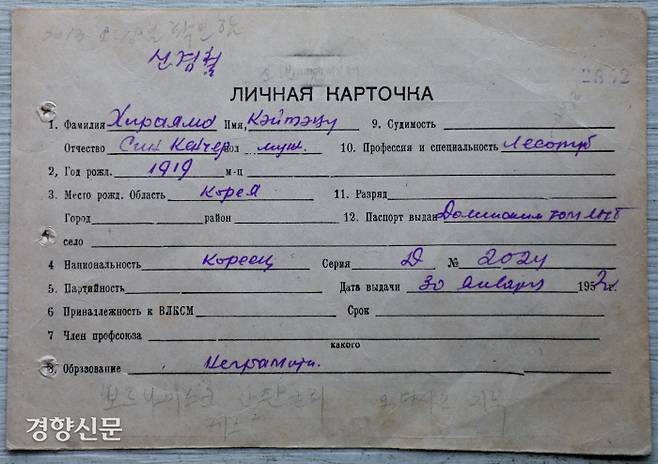 신경철
2872
ЛИЧНАЯ КАРТОЧКА
1. Фамилия Хираяма Имя, Кэйтэцу 9. Судимость
Отчество Син Кенчер Пол муж. 10. Профессия и специальность Лесоруб
2, Год рожд. 1919 м-ц
3. Место рожд. Область Корея 11. Разряд
Город район 12. Паспорт выдан Долинским
село
4 Национальность Кореец Серия Д № 2024
5. Партийность Дата выдачи 30 января 1952г.
6 Принадлежность к ВЛКСМ Срок
7 Член профсоюза
какого
8. Обрзование Неграмотн.
경향신문